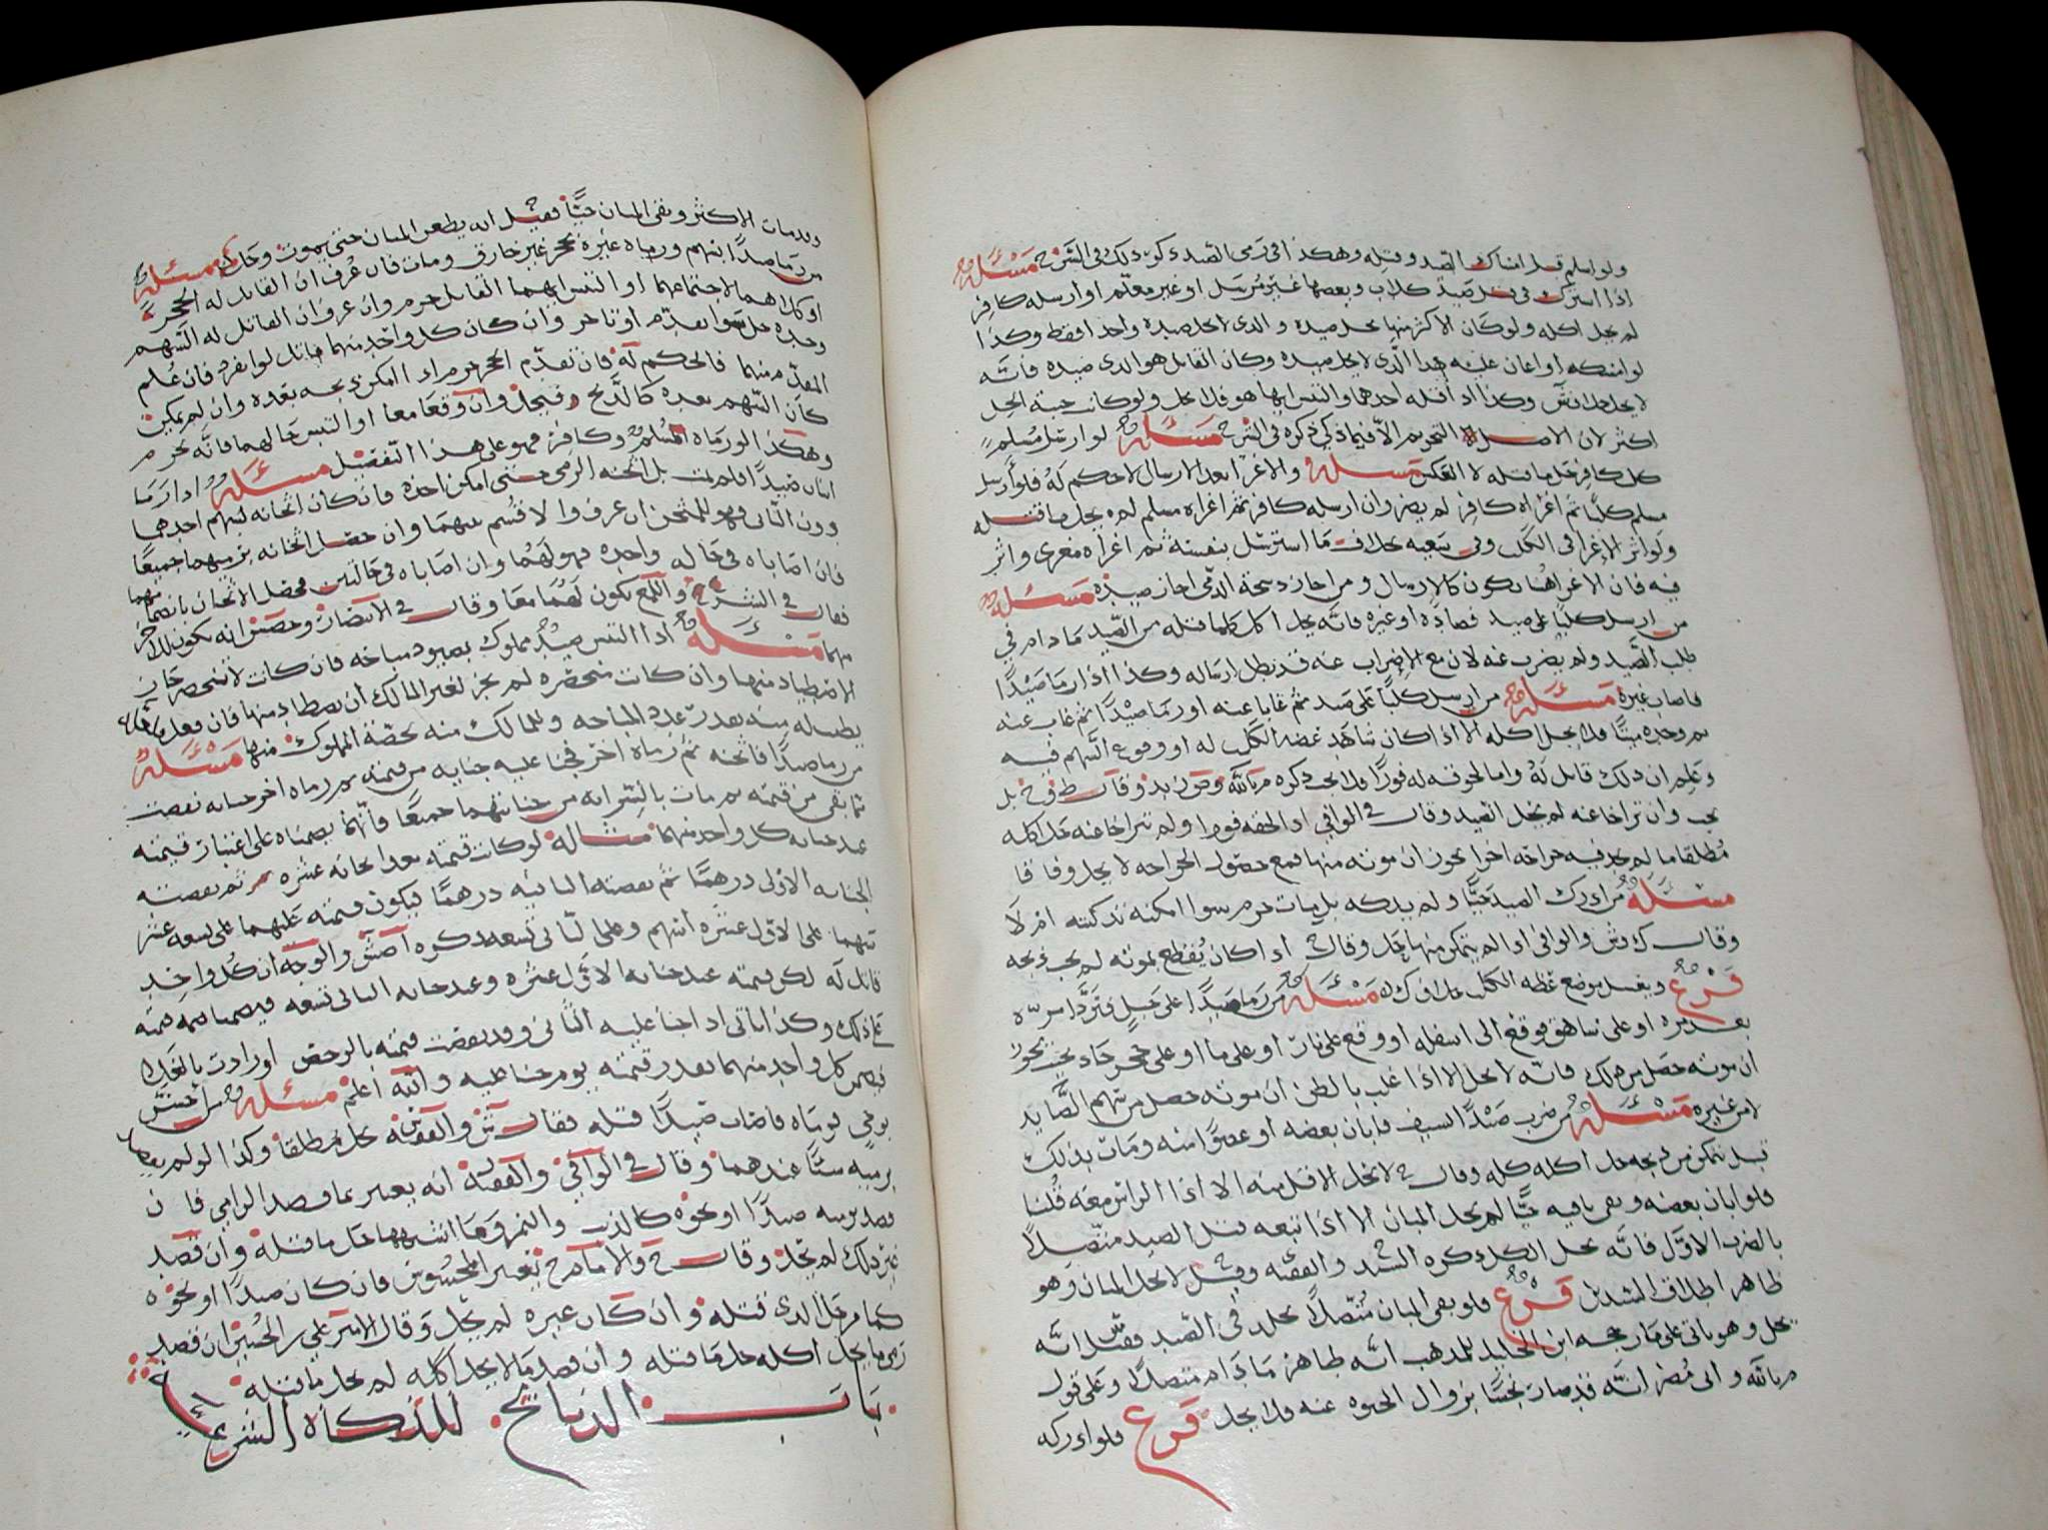 ولو اسلم قبل امساك الصيد وقتله وهكذا في رمي الصيد ذكر ذلك في الشرح مسئلة
اذا اشترك في قتل صيد كلاب وبعضها غير مرسل او غير معلم او ارسله كافر
لم يحل اكله ولو كان الاكثر منها يحل صيده والذي لا يحل صيده واحدا فقط وكذا
لو امسكه او اعان عليه هذا الذي لا يحل صيده وكان القاتل هو الذي صيده فانه
لا يحل وكذا اذا قتله احدهما والتبس ايهما هو فلا يحل ولو كانت جنبة الحل
اكثر لان الاصل التحريم الا فيما ذكي ذكره في الشرح مسئلة لو ارسل مسلم
كلب كافر حل ما قتله لا العكس مسئلة والاغرا بعد الارسال لا حكم له فلو ارسل
مسلم كلبا ثم اغراه كافر لم يضر وان ارسله كافر ثم اغراه مسلم لم يحل ما قتله
ولو اثر الاغرا في الكلب وفي تتبعه بخلاف ما استرسل بنفسه ثم اغراه مغري واثر
فيه فان الاغراء هنا يكون كالارسال ومن اجاز ذبيحة الذمي اجاز صيده مسئلة
من ارسل كلبا على صيد فصاده او غيره فانه يحل اكل كلما قتله من الصيد ما دام في
طلب الصيد ولم يضرب عنه لان مع الاضراب عنه قد بطل ارساله وكذا اذا رما صيدا
فاصاب غيره مسئلة من ارسل كلبا على صيد ثم غابا عنه او رما صيدا ثم غاب عنه
ثم وجده ميتا فلا يحل اكله الا اذا كان شاهد عضه الكلب له او وقوع السهم فيه
وعلم ان ذلك قاتل له واما لحوقه له فورا فلا يجب ذكره
يجب وان تراخا عنه لم يحل الصيد وقال في الوافي اذا لحقه فورا ولم يتراخا عنه حل اكله
مطلقا ما لم يجد فيه جراحة اخرا يجوز ان موته منها فمع حصول الجراحة لا يحل وفاقا
مسئلة من ادرك الصيد حيا ولم يذكه بل مات حرم سوا امكنه تذكيته ام لا
وقال والوافي اذا لم يتمكن منها حل وقال اذا كان يقطع بموته لم يجب ذبحه
فرع ويغسل موضع عضة الكلب مسئلة من رما صيدا على جبل فتردا من
بعد رميه او على شاهق فوقع الى اسفله او وقع على نار او على ما او على حجر حاد بحيث يجوز
ان موته حصل من ذلك فانه لا يحل الا اذا غلب بالظن ان موته حصل من سهم الصايد
لا من غيره مسئلة من ضرب صيدا بالسيف فابان بعضه او عضوا منه ومات بذلك
قبل يتمكن من ذبحه حل اكله كله وقال لا يحل الاقل منه الا اذا الراس معه قلنا
فلو ابان بعضه وبقى باقيه حيا لم يحل المبان الا اذا تبعه قتل الصيد متصلا
بالضرب الاول فانه يحل الكل ذكره السيد والفقيه وقيل لا يحل المبان وهو
ظاهر اطلاق السيدين فرع فلو بقى المبان متصلا بجلد في الصيد فقيل انه
يحل وهو ياتي على ما رجحه ابن الخليل للمذهب انه طاهر ما دام متصلا وعلى قول
م بالله وابي مضر انه قد صار نجسا بزوال الحيوة عنه فلا يحل فرع فلو ادركه
وقد مات الاكثر وبقى المبان حيا فقيل انه يطعن المبان حتى يموت وحل مسئلة
من رما صيدا بسهم ورماه غيره بحجر غير خارق ومات فان عرف ان القاتل له الحجر
او كلاهما لاجتماعهما او التبس ايهما القاتل حرم وان عرف ان القاتل له السهم
وحده حل سوا تقدم او تاخر وان كان كل واحد منهما قاتل لو انفرد فان علم
المقدم منهما فالحكم له فان تقدم الحجر حرم اذا امكن ذبحه بعده وان لم يمكن
كان السهم بعده كالذبح فيحل وان وقعا معا او التبس حالهما فانه يحرم
وهكذا لو رماه المسلم وكافر فهو على هذا التفصيل مسئلة اذا رما
اثنان صيدا فلم يمت بل اثخنه الرمي حتى امكن اخذه فان كان اثخانه بسهم احدهما
دون الثاني فهو للمثخن ان عرف والا قسم بينهما وان حصل اثخانه برميهما جميعا
فان اصاباه في حالة واحدة فهو لهما وان اصاباه في حالتين فحصل الاثخان بانضمامهما
فقال في الشرح واللمع يكون لهما معا وقال في الانتصار وحصين انه يكون للاخر
منهما مسئلة اذا التبس صيد مملوك بصيود مباحة فان كانت لا تنحصر جاز
الاصطياد منها وان كانت منحصرة لم يجز لغير المالك ان يصطاد منها فان فعل
يطيب له منه بقدر عدد المباحة وللمالك منه بحصة المملوك منها مسئلة
من رما صيدا فاثخنه ثم رماه اخر فجنا عليه جناية من قيمته ثم رماه اخر جناية نقصت
مما بقي من قيمته ثم مات بالسراية من جنايتهما جميعا فانهما يضمناه على اعتبار قيمته
عند جناية كل واحد منهما مثاله لو كانت قيمته بعد اثخانه عشرة ثم نقصته
الجناية الاولى درهما ثم نقصته الثانية درهما فيكون قيمته عليهما على تسعة عشر
سهما على الاول عشرة اسهم وعلى الثاني تسعة ذكره اصش والوجه ان كل واحد
قاتل له لكن قيمته عند جناية الاول عشرة وعند جناية الثاني تسعة فيضمنا قيمته
على ذلك وكذا ياتي اذا جنا عليه الثاني وقد نقصت قيمته بالرخص او زادت بالغلا
فيضمن كل واحد منهما بقدر قيمته يوم جنا عليه والله اعلم مسئلة من احس
بوحي فرماه فاصاب صيدا قتله فقال ش والفقيه يحل مطلقا وكذا لو لم يقصد
برميه شيئا عندهما وقال في الوافي والفقيه انه يعتبر بما قصد الرامي فان
قصد برميه صيدا او نحوه كالذيب والنمر وما اشبههما حل ما قتله وان قصد
غير ذلك لم يحل وقال ح والامام ح يعتبر المحسوس فان كان صيدا او نحوه
كما مر حل الذي قتله وان كان غيره لم يحل وقال الامير علي بن الحسين ان قصد
رمي ما يحل اكله حل ما قتله وان قصد ما لا يحل اكله لم يحل ما قتله
باب الذبايح للذكاة الشرعية